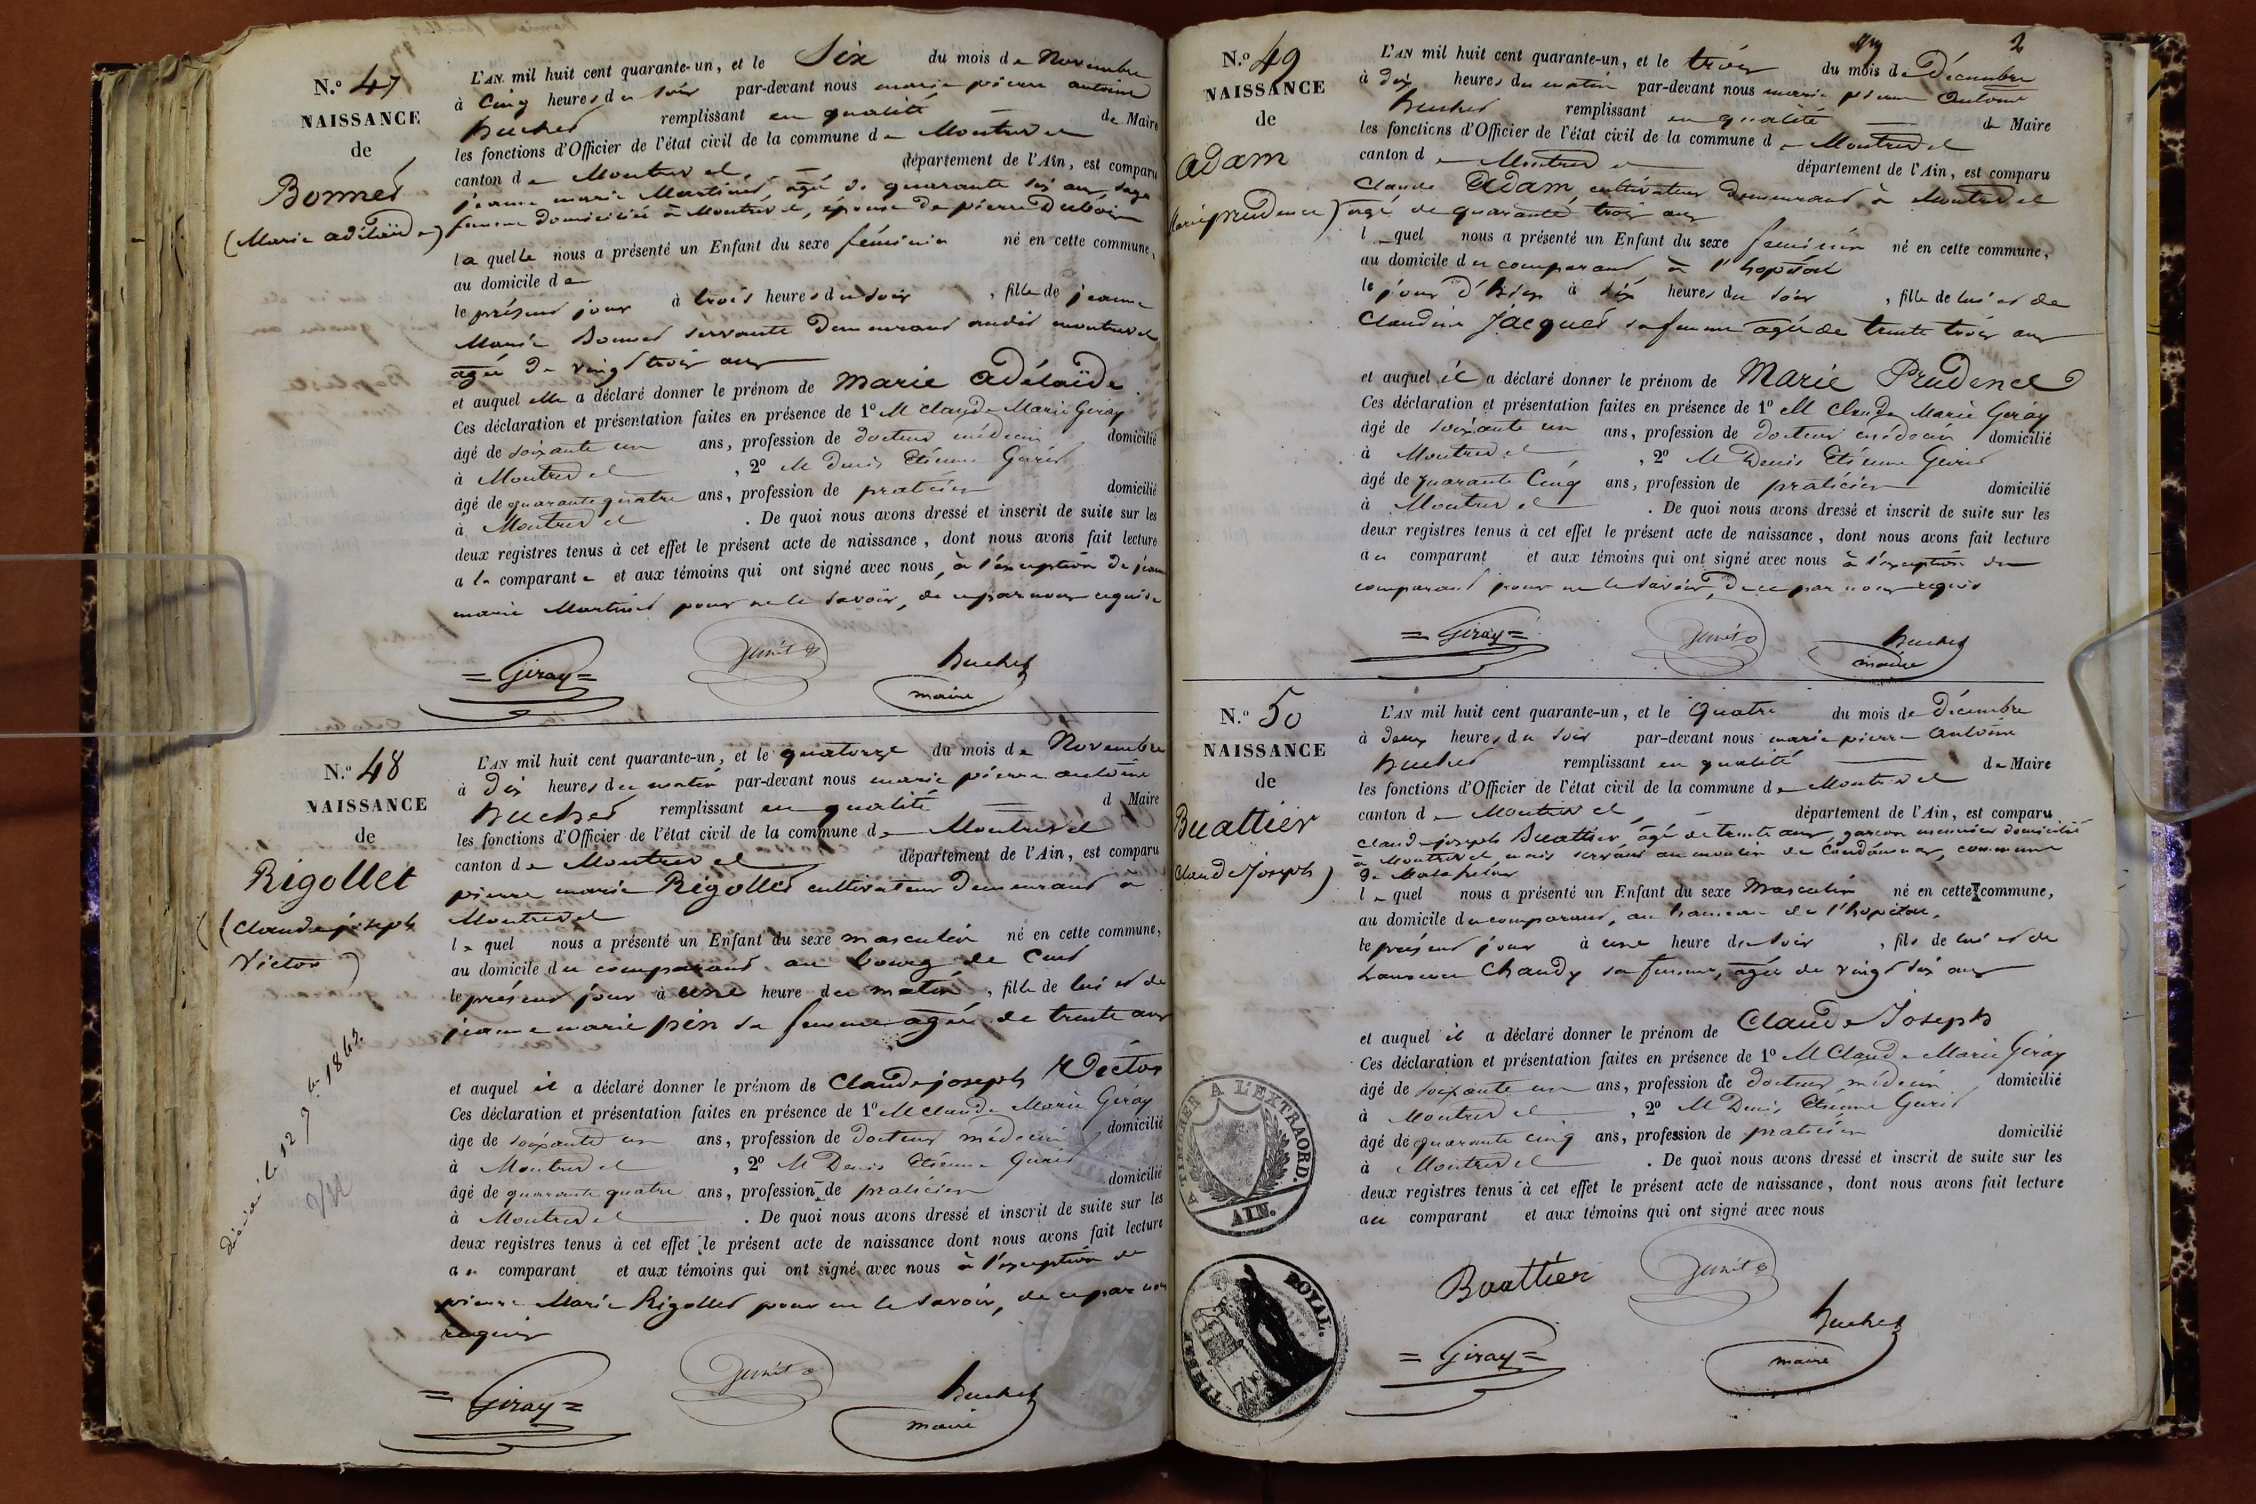 N.º 47
NAISSANCE
de
Bonnet
(Marie adélaïde)
L'AN mil huit cent quarante-un, et le Six du mois de Novembre
à Cinq heures du soir par-devant nous marie pierre antoine
Buchet remplissant en qualité de Maire
les fonctions d'Officier de l'état civil de la commune de Montrevel
canton de Montrevel, département de l'Ain, est comparu
jeanne marie Martinet, agée de quarante six ans, sage
femme domiciliée à Montrevel, épouse de pierre Dubois
la quelle nous a présenté un Enfant du sexe féminin né en cette commune,
au domicile de
le présent jour à trois heures du soir, fille de jeanne
Marie Bonnet servante demeurant audit montrevel
agée de vingt trois ans
et auquel elle a déclaré donner le prénom de Marie Adélaïde
Ces déclaration et présentation faites en présence de 1º M Claude Marie Giray
âgé de soixante un ans, profession de docteur médecin domicilié
à Montrevel, 2º M Denis Etienne
âgé de quarante quatre ans, profession de praticien domicilié
à Montrevel. De quoi nous avons dressé et inscrit de suite sur les
deux registres tenus à cet effet le présent acte de naissance, dont nous avons fait lecture
a la comparante et aux témoins qui ont signé avec nous, à l'exception de jeanne
marie Martinet pour ne le savoir, de ce par nous requise
= Giray =
Buchet
maire
N.º 48
NAISSANCE
de
Rigollet
(Claude joseph
Victor)
décédé le 12 7bre 1862
Vu
L'AN mil huit cent quarante-un, et le quatorze du mois de Novembre
à dix heures du matin par-devant nous marie pierre antoine
Buchet remplissant en qualité d Maire
les fonctions d'Officier de l'état civil de la commune de Montrevel
canton de Montrevel département de l'Ain, est comparu
pierre marie Rigollet cultivateur demeurant à
Montrevel
le quel nous a présenté un Enfant du sexe masculin né en cette commune,
au domicile du comparant, au bourg de Cuet
le présent jour à une heure du matin, fille de lui et de
jeanne marie pin sa femme agée de trente ans
et auquel il a déclaré donner le prénom de Claude joseph Victor
Ces déclaration et présentation faites en présence de 1º M Claude Marie Giray
âge de soixante un ans, profession de docteur médecin domicilié
à Montrevel, 2º M Denis Etienne
âgé de quarante quatre ans, profession de praticien domicilié
à Montrevel. De quoi nous avons dressé et inscrit de suite sur les
deux registres tenus à cet effet le présent acte de naissance dont nous avons fait lecture
au comparant et aux témoins qui ont signé avec nous à l'exception de
pierre Marie Rigollet pour ne le savoir, de ce par nous
requis
= Giray =
Buchet
maire
2
N.º 49
NAISSANCE
de
Adam
(Marie prudence)
L'AN mil huit cent quarante-un, et le trois du mois de Décembre
à dix heures du matin par-devant nous marie pierre Antoine
Buchet remplissant en qualité de Maire
les fonctions d'Officier de l'état civil de la commune de Montrevel
canton de Montrevel département de l'Ain, est comparu
Claude Adam cultivateur demeurant à Montrevel
agé de quarante trois ans
le quel nous a présenté un Enfant du sexe feminin né en cette commune,
au domicile du comparant, à l'hopital
le jour d'hier à six heures du soir, fille de lui et de
Claudine Jacquet sa femme agée de trente trois ans
et auquel il a déclaré donner le prénom de Marie Prudence
Ces déclaration et présentation faites en présence de 1º M Claude Marie Giray
âgé de soixante un ans, profession de docteur médecin domicilié
à Montrevel, 2º M Denis Etienne
âgé de quarante Cinq ans, profession de praticien domicilié
à Montrevel. De quoi nous avons dressé et inscrit de suite sur les
deux registres tenus à cet effet le présent acte de naissance, dont nous avons fait lecture
au comparant et aux témoins qui ont signé avec nous à l'exception du
comparant pour ne le savoir, de ce par nous requis
= Giray =
Buchet
maire
N.º 50
NAISSANCE
de
Buattier
(Claude Joseph)
L'AN mil huit cent quarante-un, et le Quatre du mois de Décembre
à deux heures du soir par-devant nous marie pierre Antoine
Buchet remplissant en qualité de Maire
les fonctions d'Officier de l'état civil de la commune de Montrevel
canton de Montrevel, département de l'Ain, est comparu
claude joseph Buattier, agé de trente ans, garcon meunier domicilié
à Montrevel mais servant au moulin de commune
de Malafretaz
le quel nous a présenté un Enfant du sexe Masculin né en cette commune,
au domicile du comparant, au hameau de l'hopital,
le présent jour à une heure du soir, fils de lui et de
Chaudy sa femme, agée de vingt six ans
et auquel il a déclaré donner le prénom de Claude Joseph
Ces déclaration et présentation faites en présence de 1º M Claude Marie Giray
âgé de soixante un ans, profession de docteur médecin domicilié
à Montrevel, 2º M Denis Etienne
âgé de quarante cinq ans, profession de praticien domicilié
à Montrevel. De quoi nous avons dressé et inscrit de suite sur les
deux registres tenus à cet effet le présent acte de naissance, dont nous avons fait lecture
au comparant et aux témoins qui ont signé avec nous
Buattier
Buchet
= Giray =
maire
A TIMBRER A L'EXTRAORD.
AIN.
TIMBRE ROYAL.